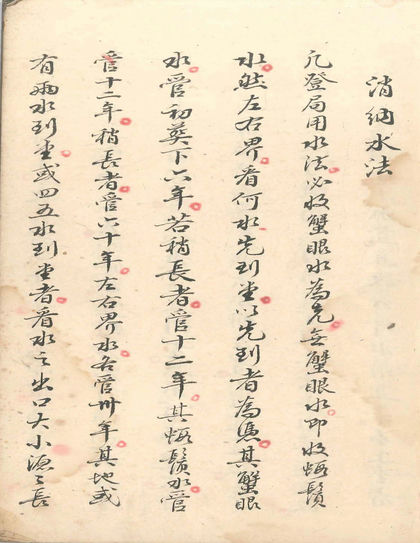 消納水法
凡登局用水法必收蟹眼水為先無蟹眼水即收蝦鬚
水然左右界看何水先到堂以先到者為憑其蟹眼
水管初葵下六年若稍長者管十二年其蝦鬚水管
管十二年稍長者管六十年左右界水各管卅年其地或
有兩水到堂或四五水到堂者看水之出口大小源之長